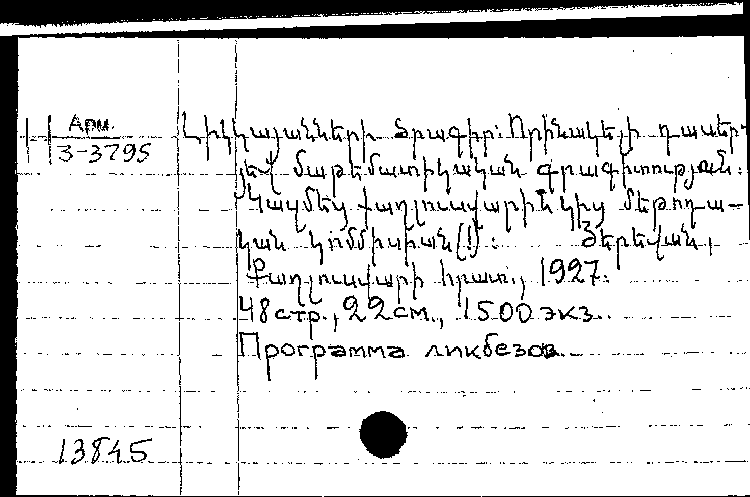 Арм.
3-3795
Լիկկայանների ծրագիր: Որինակելի դասեր
յեվ մաթեմատիկական գրագիտության:
Կազմեց Քաղլուսվարին կից մեթոդա-
կան կոմմիսիան(!): Յերեվան,
Քաղլուսվարի հրատ., 1927.
48 стр., 22 см., 1500 экз.
Программа ликбезов
13845